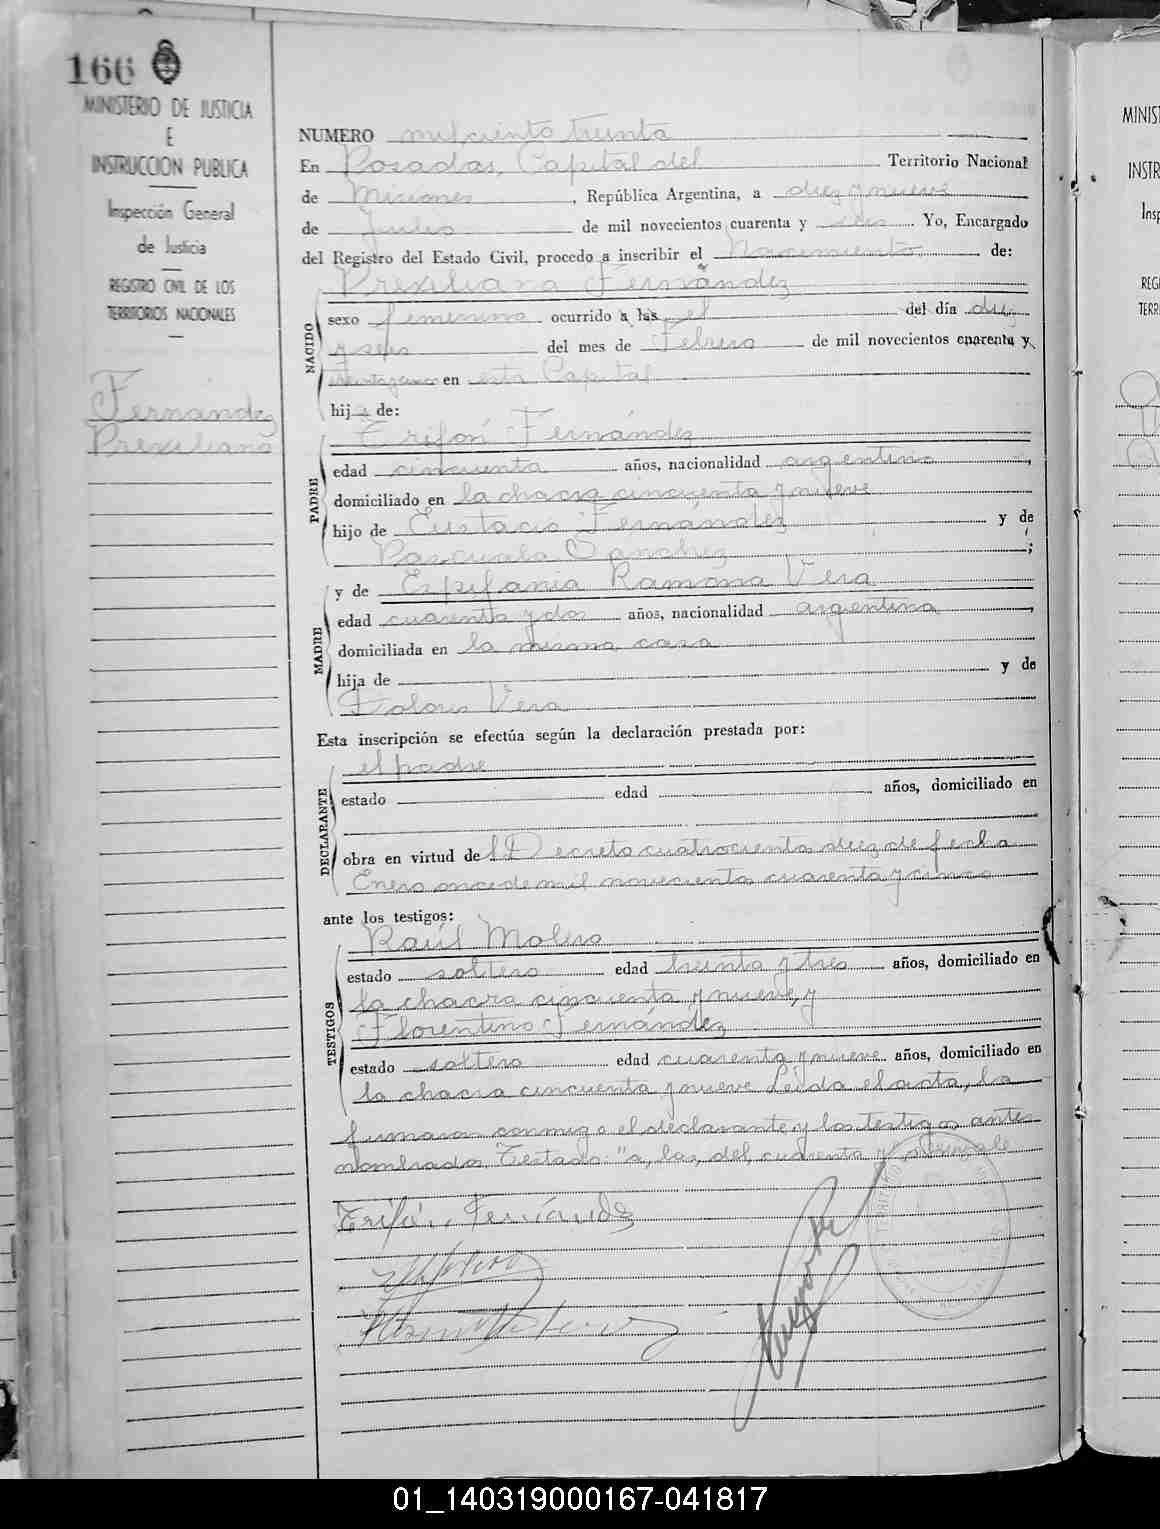 166
MINISTERIO DE JUSTICIA
E
INSTRUCCION PUBLICA
Inspección General
de Justicia
REGISTRO CIVIL DE LOS
TERRITORIOS NACIONALES
Fernández
Prexiliana
NUMERO mil ciento treinta
En Posadas, Capital del Territorio Nacional
de Misiones, República Argentina, a diez y nueve
de Junio de mil novecientos cuarenta y seis Yo, Encargado
del Registro del Estado Civil, procedo a inscribir el Nacimiento de:
Prexiliana Fernández
NACIDO
sexo femenino ocurrido a las el del día diez
y seis del mes de Febrero de mil novecientos cuarenta y
en esta Capital
hija de:
PADRE
Trifón Fernández
edad cincuenta años, nacionalidad argentino,
domiciliado en la chacra cincuenta y nueve
hijo de Eustacio Fernández y de
Pascuala Sanchez;
MADRE
y de Epifania Ramona Vera
edad cuarenta y dos años, nacionalidad argentina,
domiciliada en la misma casa
hija de y de
Dolores Vera
Esta inscripción se efectúa según la declaración prestada por:
DECLARANTE
el padre
estado edad años, domiciliado en
obra en virtud del Decreto cuatrocientos diez de fecha
Enero once de mil novecientos cuarenta y cinco
ante los testigos:
TESTIGOS
Raúl Molino
estado soltero edad treinta y tres años, domiciliado en
la chacra cincuenta y nueve, y
Florentino Fernández
estado soltero edad cuarenta y nueve años, domiciliado en
la chacra cincuenta y nueve Leida el acta, la
firmaron conmigo el declarante y los testigos antes
nombrados. Testado: "a, las, del, cuarenta y" no vale
Trifón Fernández
MINIS
INSTR
Insp
REG
TERR
01_140319000167-041817